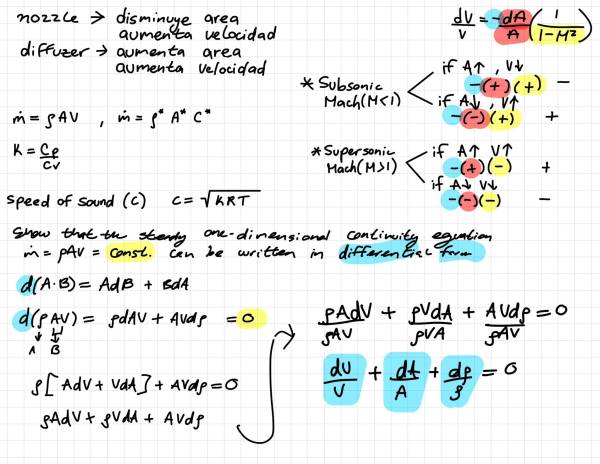 nozzle → disminuye area
aumenta velocidad
diffuzer → aumenta area
aumenta velocidad
ṁ = ρAV , ṁ = ρ* A* C*
K = Cp/Cv
speed of sound (c) c = √KRT
dV/V = -dA/A (1/1-M²)
* Subsonic Mach (M<1)
if A↑ , V↓
-(+)(+) -
if A↓ , V↑
-(-)(+) +
* Supersonic Mach (M>1)
if A↑ V↑
-(+)(-) +
if A↓ V↓
-(-)(-) -
Show that the steady one-dimensional continuity equation
ṁ = ρAV = const. can be written in differential form
d(A·B) = AdB + BdA
d(ρAV) = ρdAV + AVdρ = 0
A B
ρ[AdV + VdA] + AVdρ = 0
ρAdV + ρVdA + AVdρ
ρAdV/ρAV + ρVdA/ρVA + AVdρ/ρAV = 0
dV/V + dA/A + dρ/ρ = 0